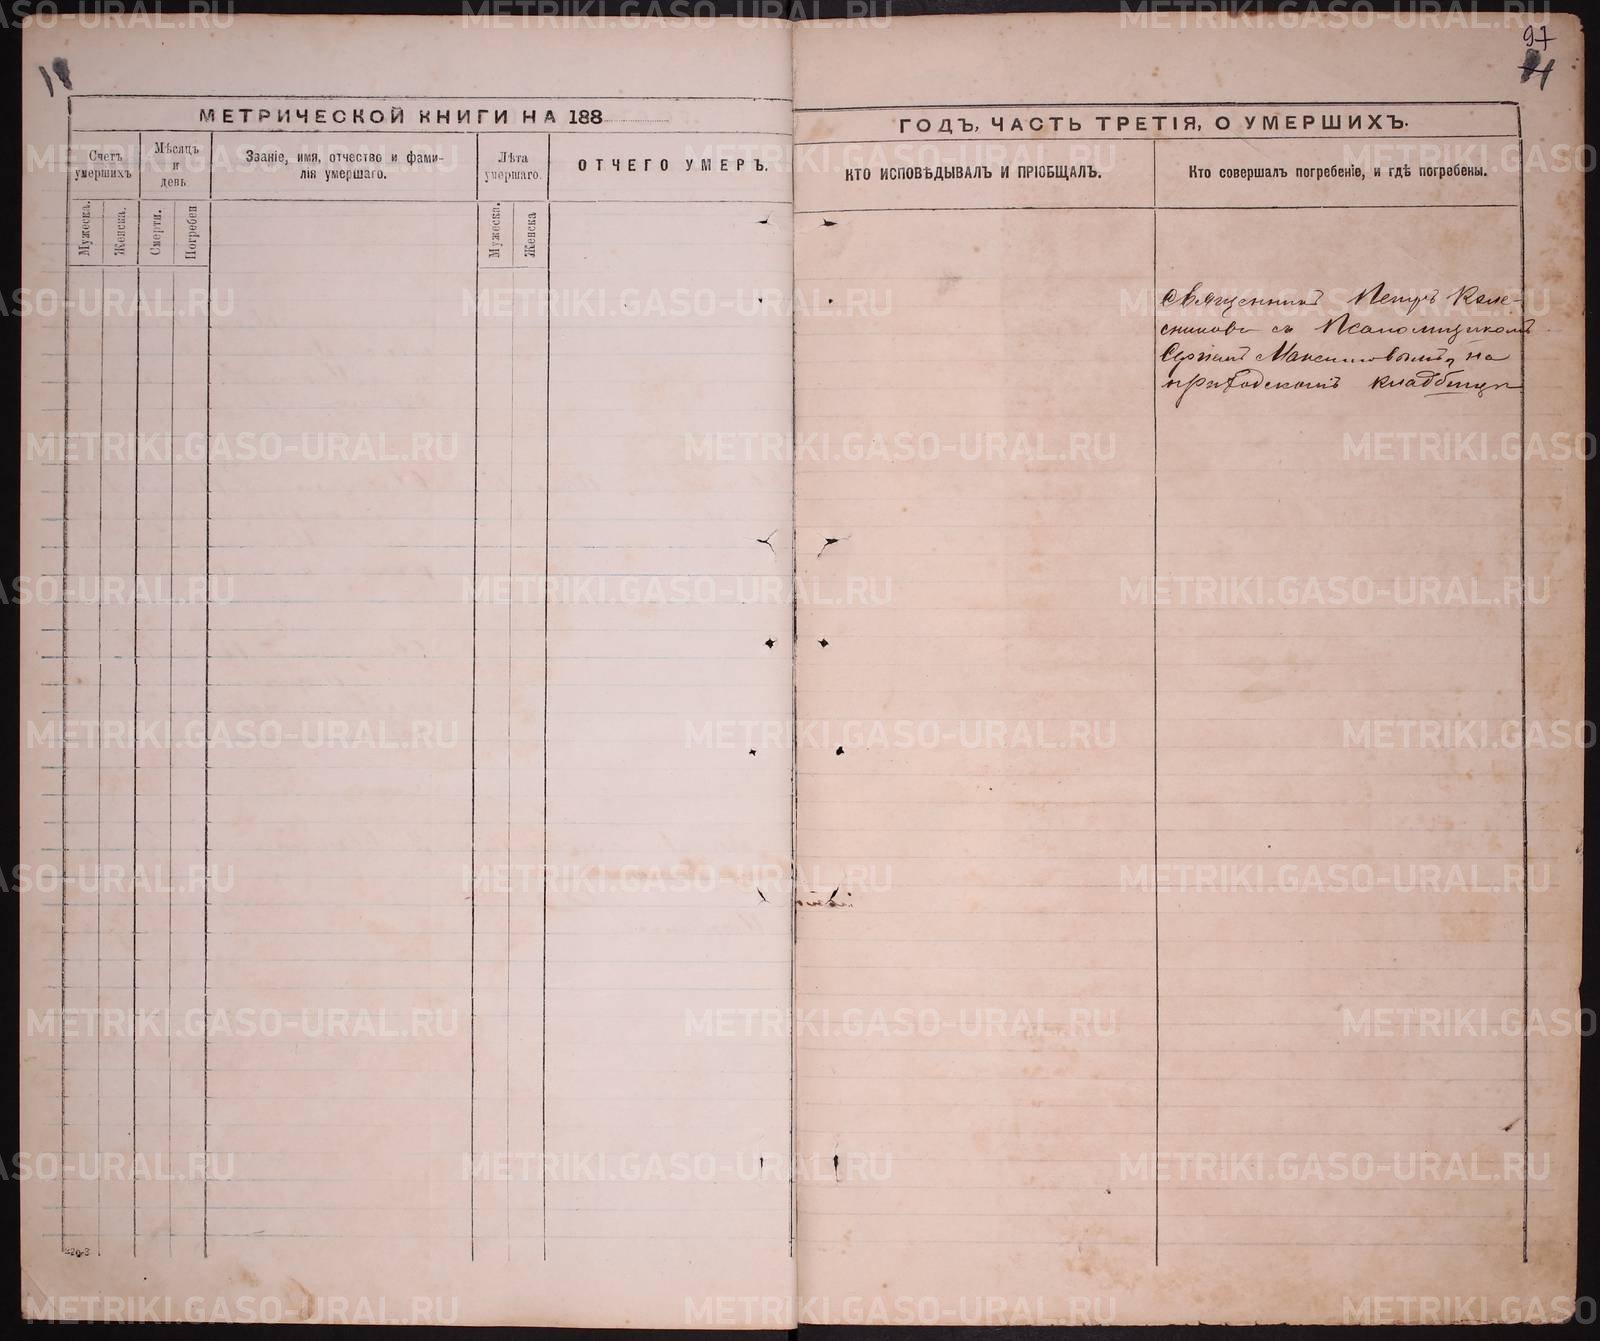 97
МЕТРИЧЕСКОЙ КНИГИ НА 188
ГОДЪ, ЧАСТЬ ТРЕТІЯ, О УМЕРШИХЪ.
Счетъ умершихъ
Мѣсяцъ и день
Званіе, имя, отчество и фами-
лія умершаго.
Лѣта умершаго.
ОТЧЕГО УМЕРЪ.
КТО ИСПОВѢДЫВАЛЪ И ПРІОБЩАЛЪ.
Кто совершалъ погребеніе, и гдѣ погребены.
Мужеска.
Женска.
Смерти.
Погребен
Мужеска.
Женска
Священникъ Петръ Коле-
сниковъ съ Псаломщикомъ
Сергіемъ Максимовымъ, на
приходскомъ кладбищѣ
METRIKI.GASO-URAL.RU